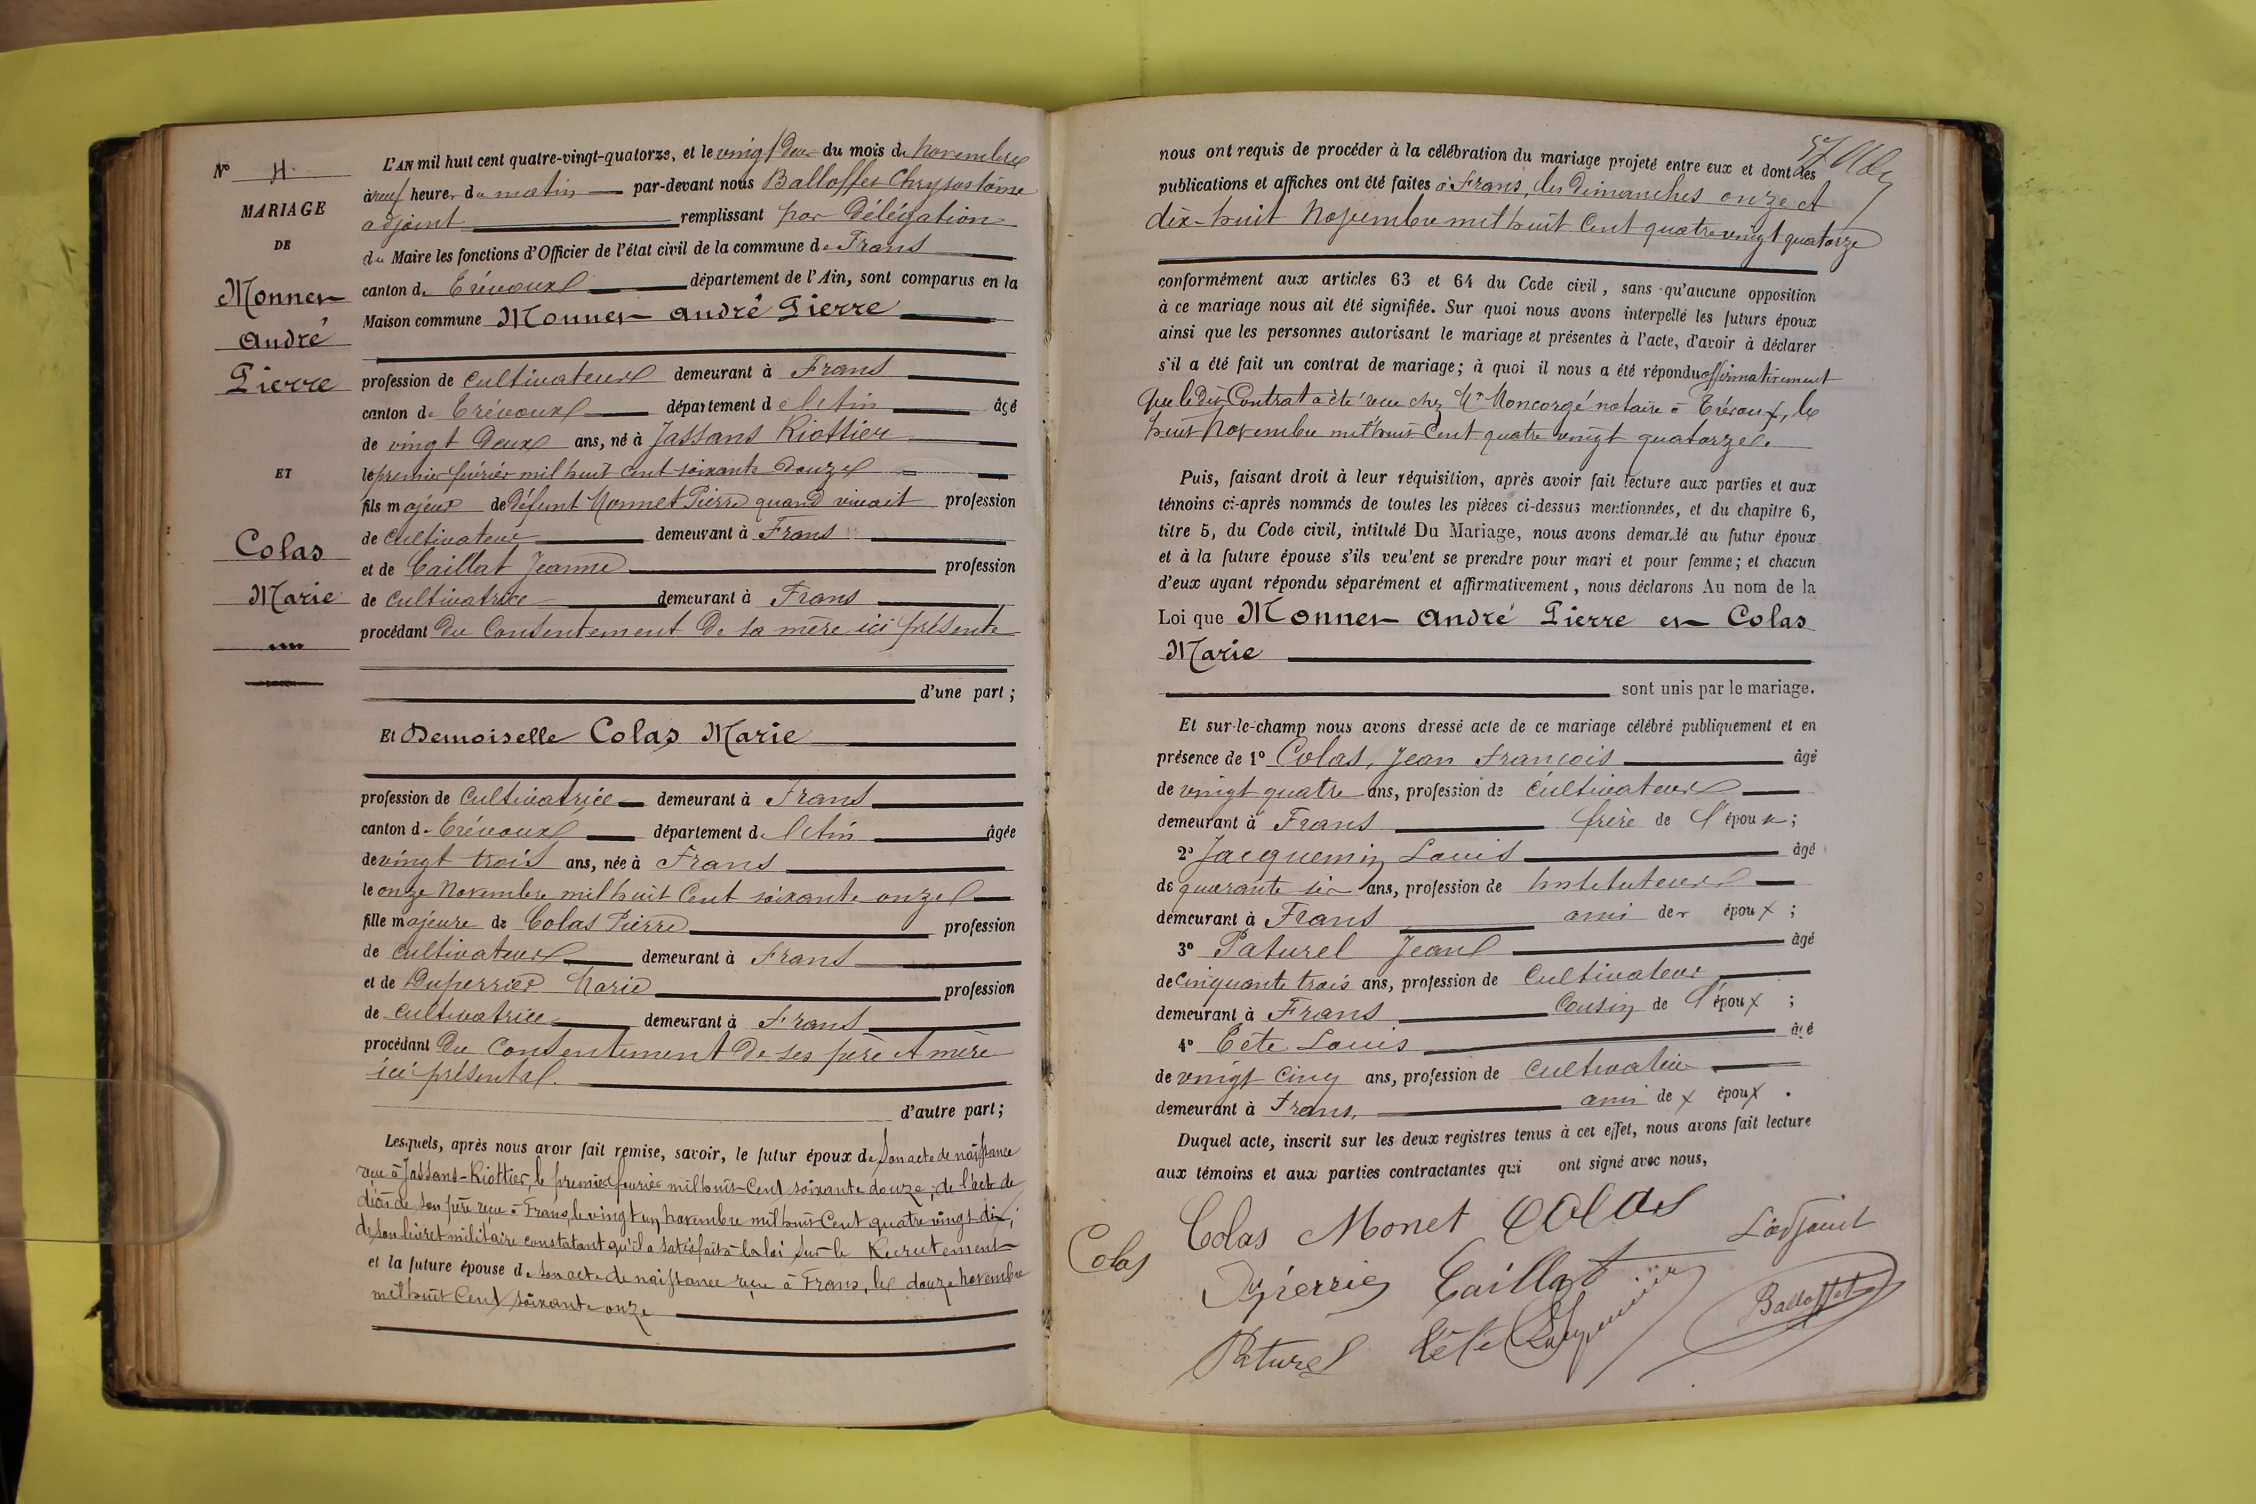 N° 4.
MARIAGE
DE
Monnet
André
Pierre
ET
Colas
Marie
L'AN mil huit cent quatre-vingt-quatorze, et le vingt deux du mois de novembre
à neuf heures du matin par-devant nous Balloffet Chrysostôme
adjoint remplissant par Délégation
du Maire les fonctions d'Officier de l'état civil de la commune de Frans
canton de Trévoux département de l'Ain, sont comparus en la
Maison commune Monnet André Pierre
profession de cultivateur demeurant à Frans
canton de Trévoux département de l'Ain âgé
de vingt deux ans, né à Jassans Riottier
le premier février mil huit cent soixante douze
fils majeur de Défunt Monnet Pierre quand vivait profession
de cultivateur demeurant à Frans
et de Caillat Jeanne profession
de cultivatrice demeurant à Frans
procédant du Consentement de sa mère ici présente
d'une part ;
Et Demoiselle Colas Marie
profession de cultivatrice demeurant à Frans
canton de Trévoux département de l'Ain âgée
de vingt trois ans, née à Frans
le onze Novembre mil huit Cent soixante onze
fille majeure de Colas Pierre profession
de cultivateur demeurant à Frans
et de Duperrier Marie profession
de cultivatrice demeurant à Frans
procédant du consentement de ses père et mère
ici présents.
d'autre part ;
Lesquels, après nous avoir fait remise, savoir, le futur époux de son acte de naissance
reçu à Jassans-Riottier, le premier février mil huit-Cent soixante douze, de l'acte de
décès de son père reçu à Frans, le vingt un novembre mil huit-Cent quatre vingt-dix,
de son livret militaire constatant qu'il a satisfait à la loi sur le Recrutement
et la future épouse de son acte de naissance reçu à Frans, le douze novembre
mil huit Cent soixante onze
nous ont requis de procéder à la célébration du mariage projeté entre eux et dont les
publications et affiches ont été faites à Frans, les Dimanches onze et
dix-huit Novembre mil huit Cent quatre vingt quatorze
conformément aux articles 63 et 64 du Code civil, sans qu'aucune opposition
à ce mariage nous ait été signifiée. Sur quoi nous avons interpellé les futurs époux
ainsi que les personnes autorisant le mariage et présentes à l'acte, d'avoir à déclarer
s'il a été fait un contrat de mariage ; à quoi il nous a été répondu affirmativement
que le dit Contrat a été reçu chez Mr Moncorgé notaire à Trévoux, le
huit Novembre mil huit Cent quatre vingt quatorze.
Puis, faisant droit à leur réquisition, après avoir fait lecture aux parties et aux
témoins ci-après nommés de toutes les pièces ci-dessus mentionnées, et du chapitre 6,
titre 5, du Code civil, intitulé Du Mariage, nous avons demandé au futur époux
et à la future épouse s'ils veulent se prendre pour mari et pour femme ; et chacun
d'eux ayant répondu séparément et affirmativement, nous déclarons Au nom de la
Loi que Monnet André Pierre et Colas
Marie
sont unis par le mariage.
Et sur-le-champ nous avons dressé acte de ce mariage célébré publiquement et en
présence de 1° Colas, Jean François âgé
de vingt quatre ans, profession de cultivateur
demeurant à Frans frère de l'épouse ;
2° Jacquemin Louis âgé
de quarante six ans, profession de Instituteur
demeurant à Frans ami des époux ;
3° Paturel Jean âgé
de Cinquante trois ans, profession de cultivateur
demeurant à Frans Cousin de l'époux ;
4° Tête Louis âgé
de vingt cinq ans, profession de cultivateur
demeurant à Frans, ami de x époux .
Duquel acte, inscrit sur les deux registres tenus à cet effet, nous avons fait lecture
aux témoins et aux parties contractantes qui ont signé avec nous,
Colas Monet Colas
Colas L'adjoint
Caillat Balloffet
Paturel Tête Jacquemin